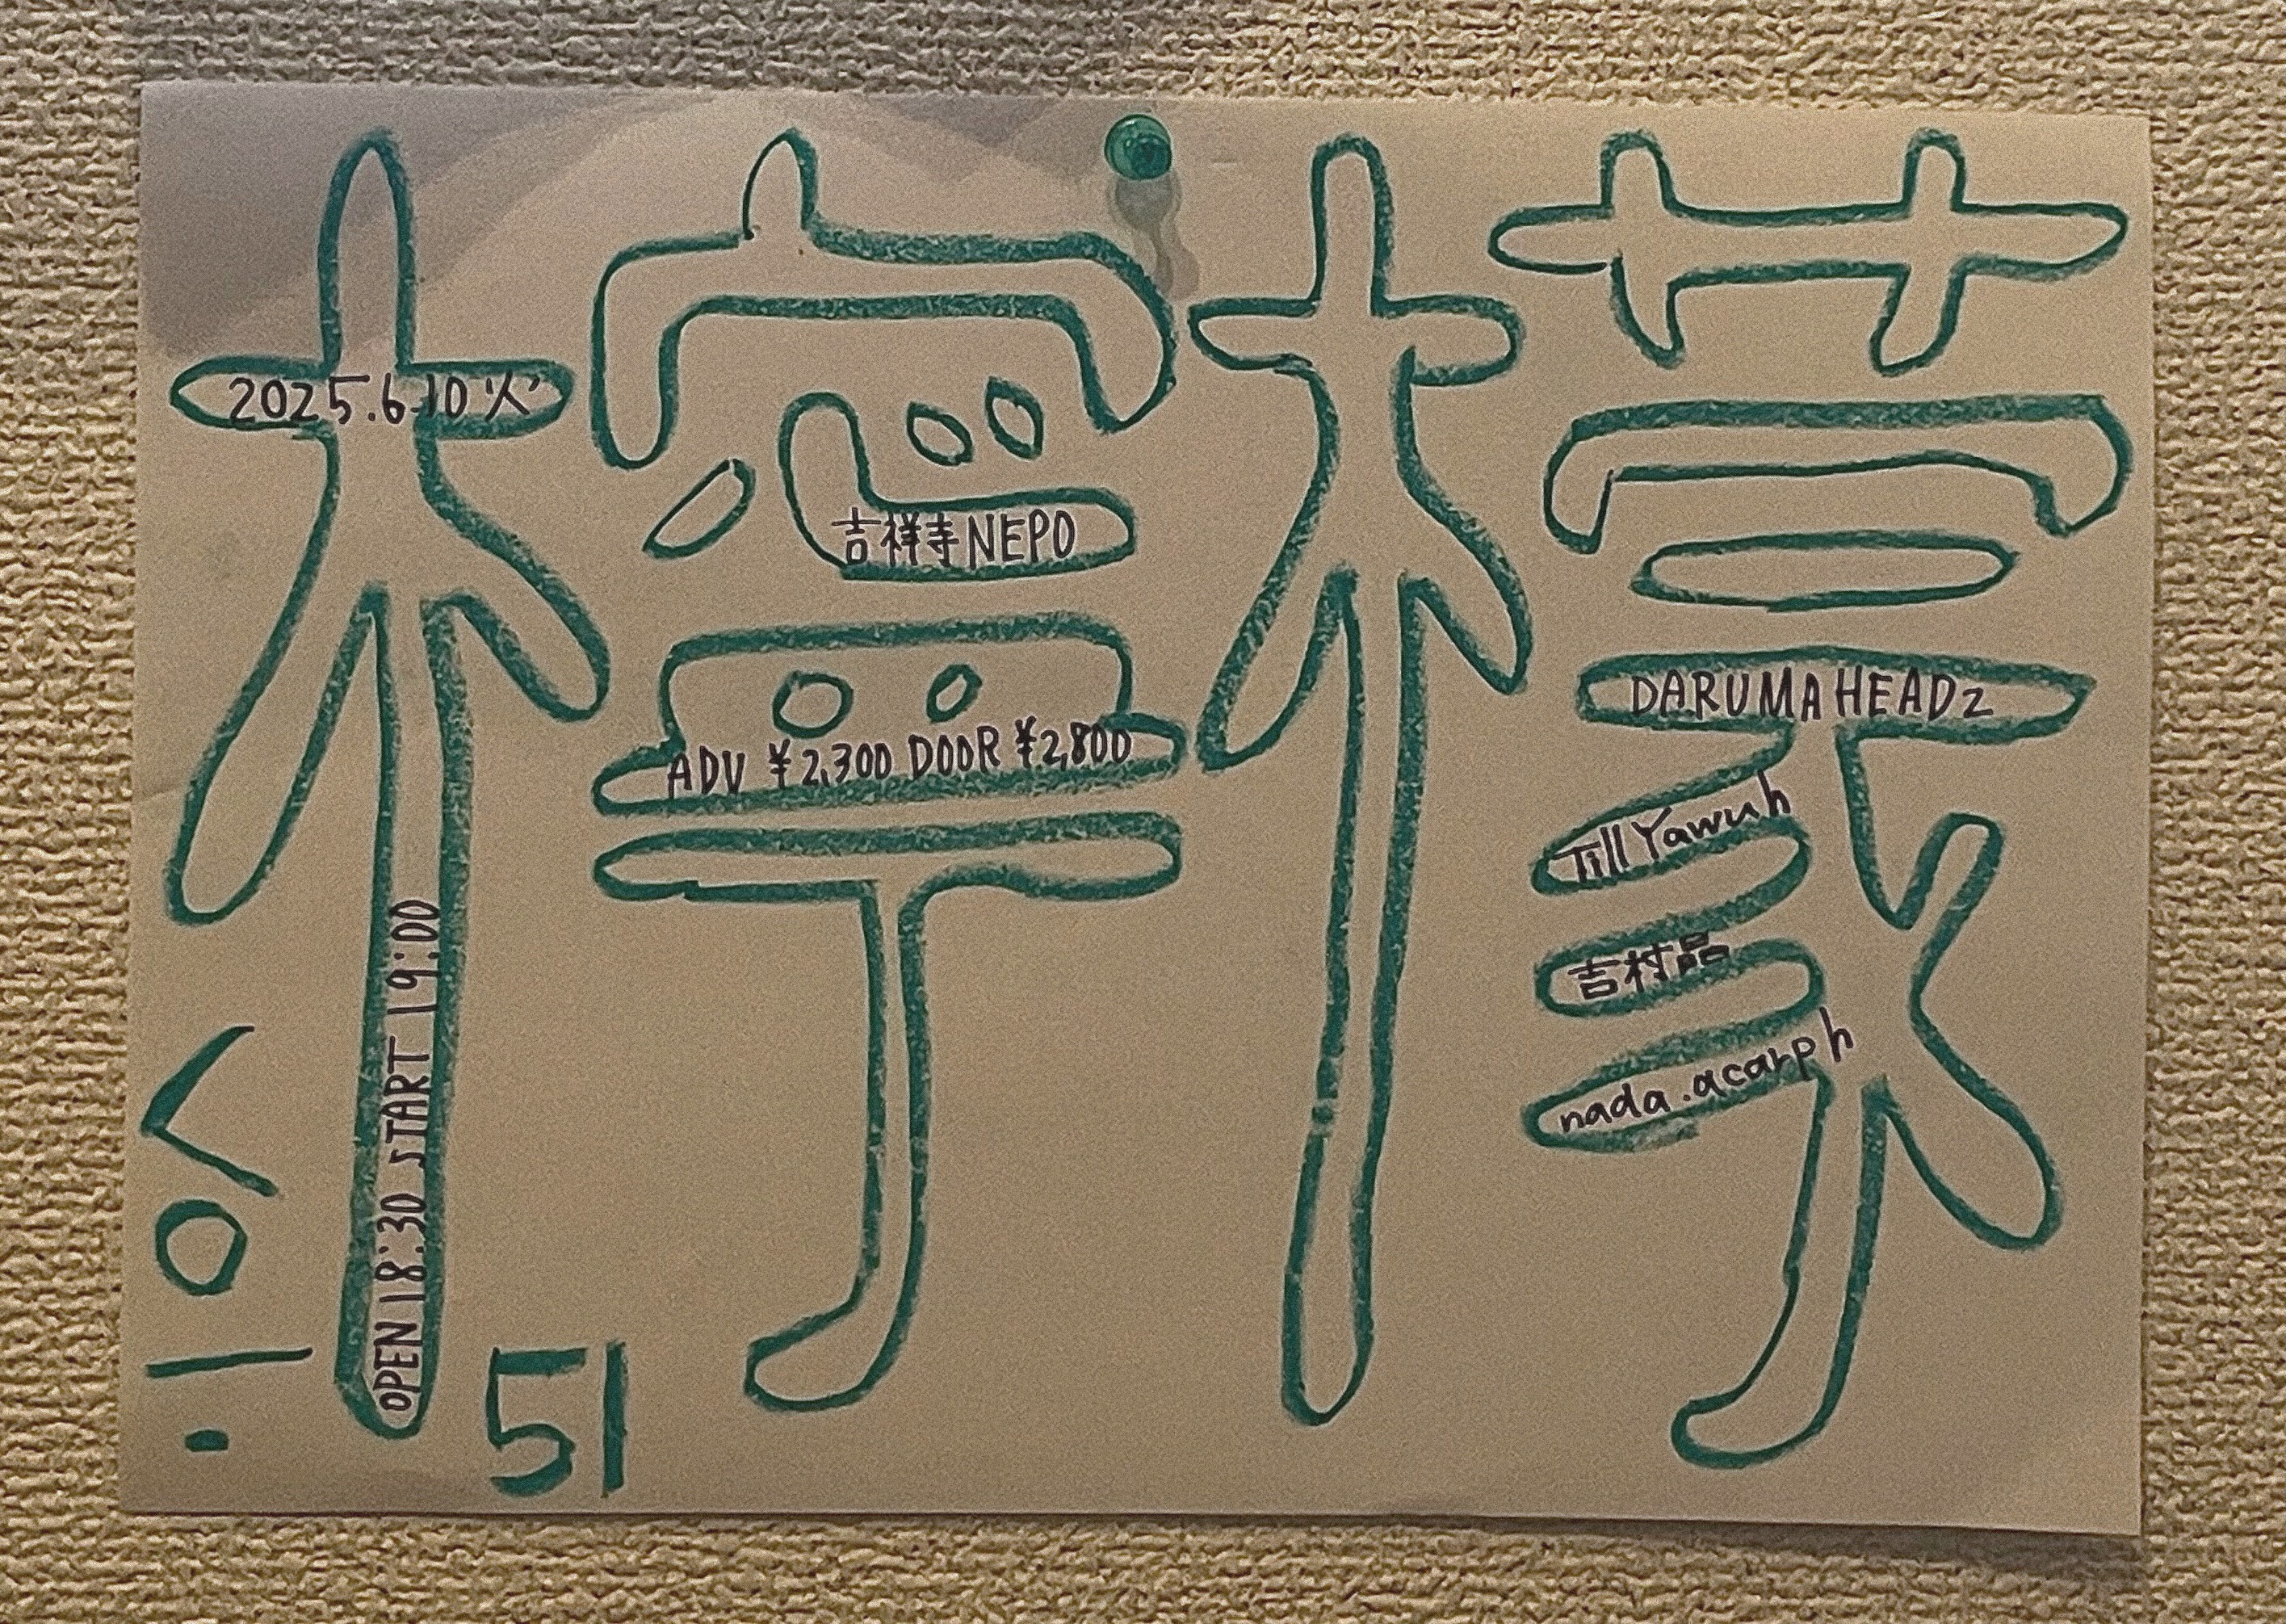 檸檬
2025.6.10火
OPEN 18:30 START 19:00
吉祥寺NEPO
ADV ¥2,300 DOOR ¥2,800
DARUMA HEADz
Till Yawuh
吉村品
nada.acarph
Vol.
51